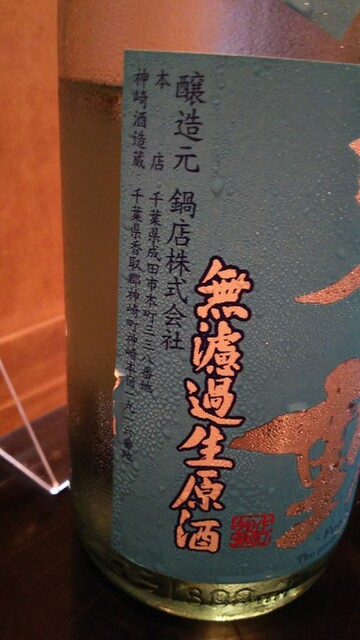 醸造元 鍋店株式会社
本店 千葉県成田市本町三三八番地
神崎酒造蔵 千葉県香取郡神崎町神崎本宿一九一六番地
無濾過生原酒
動
The
1800